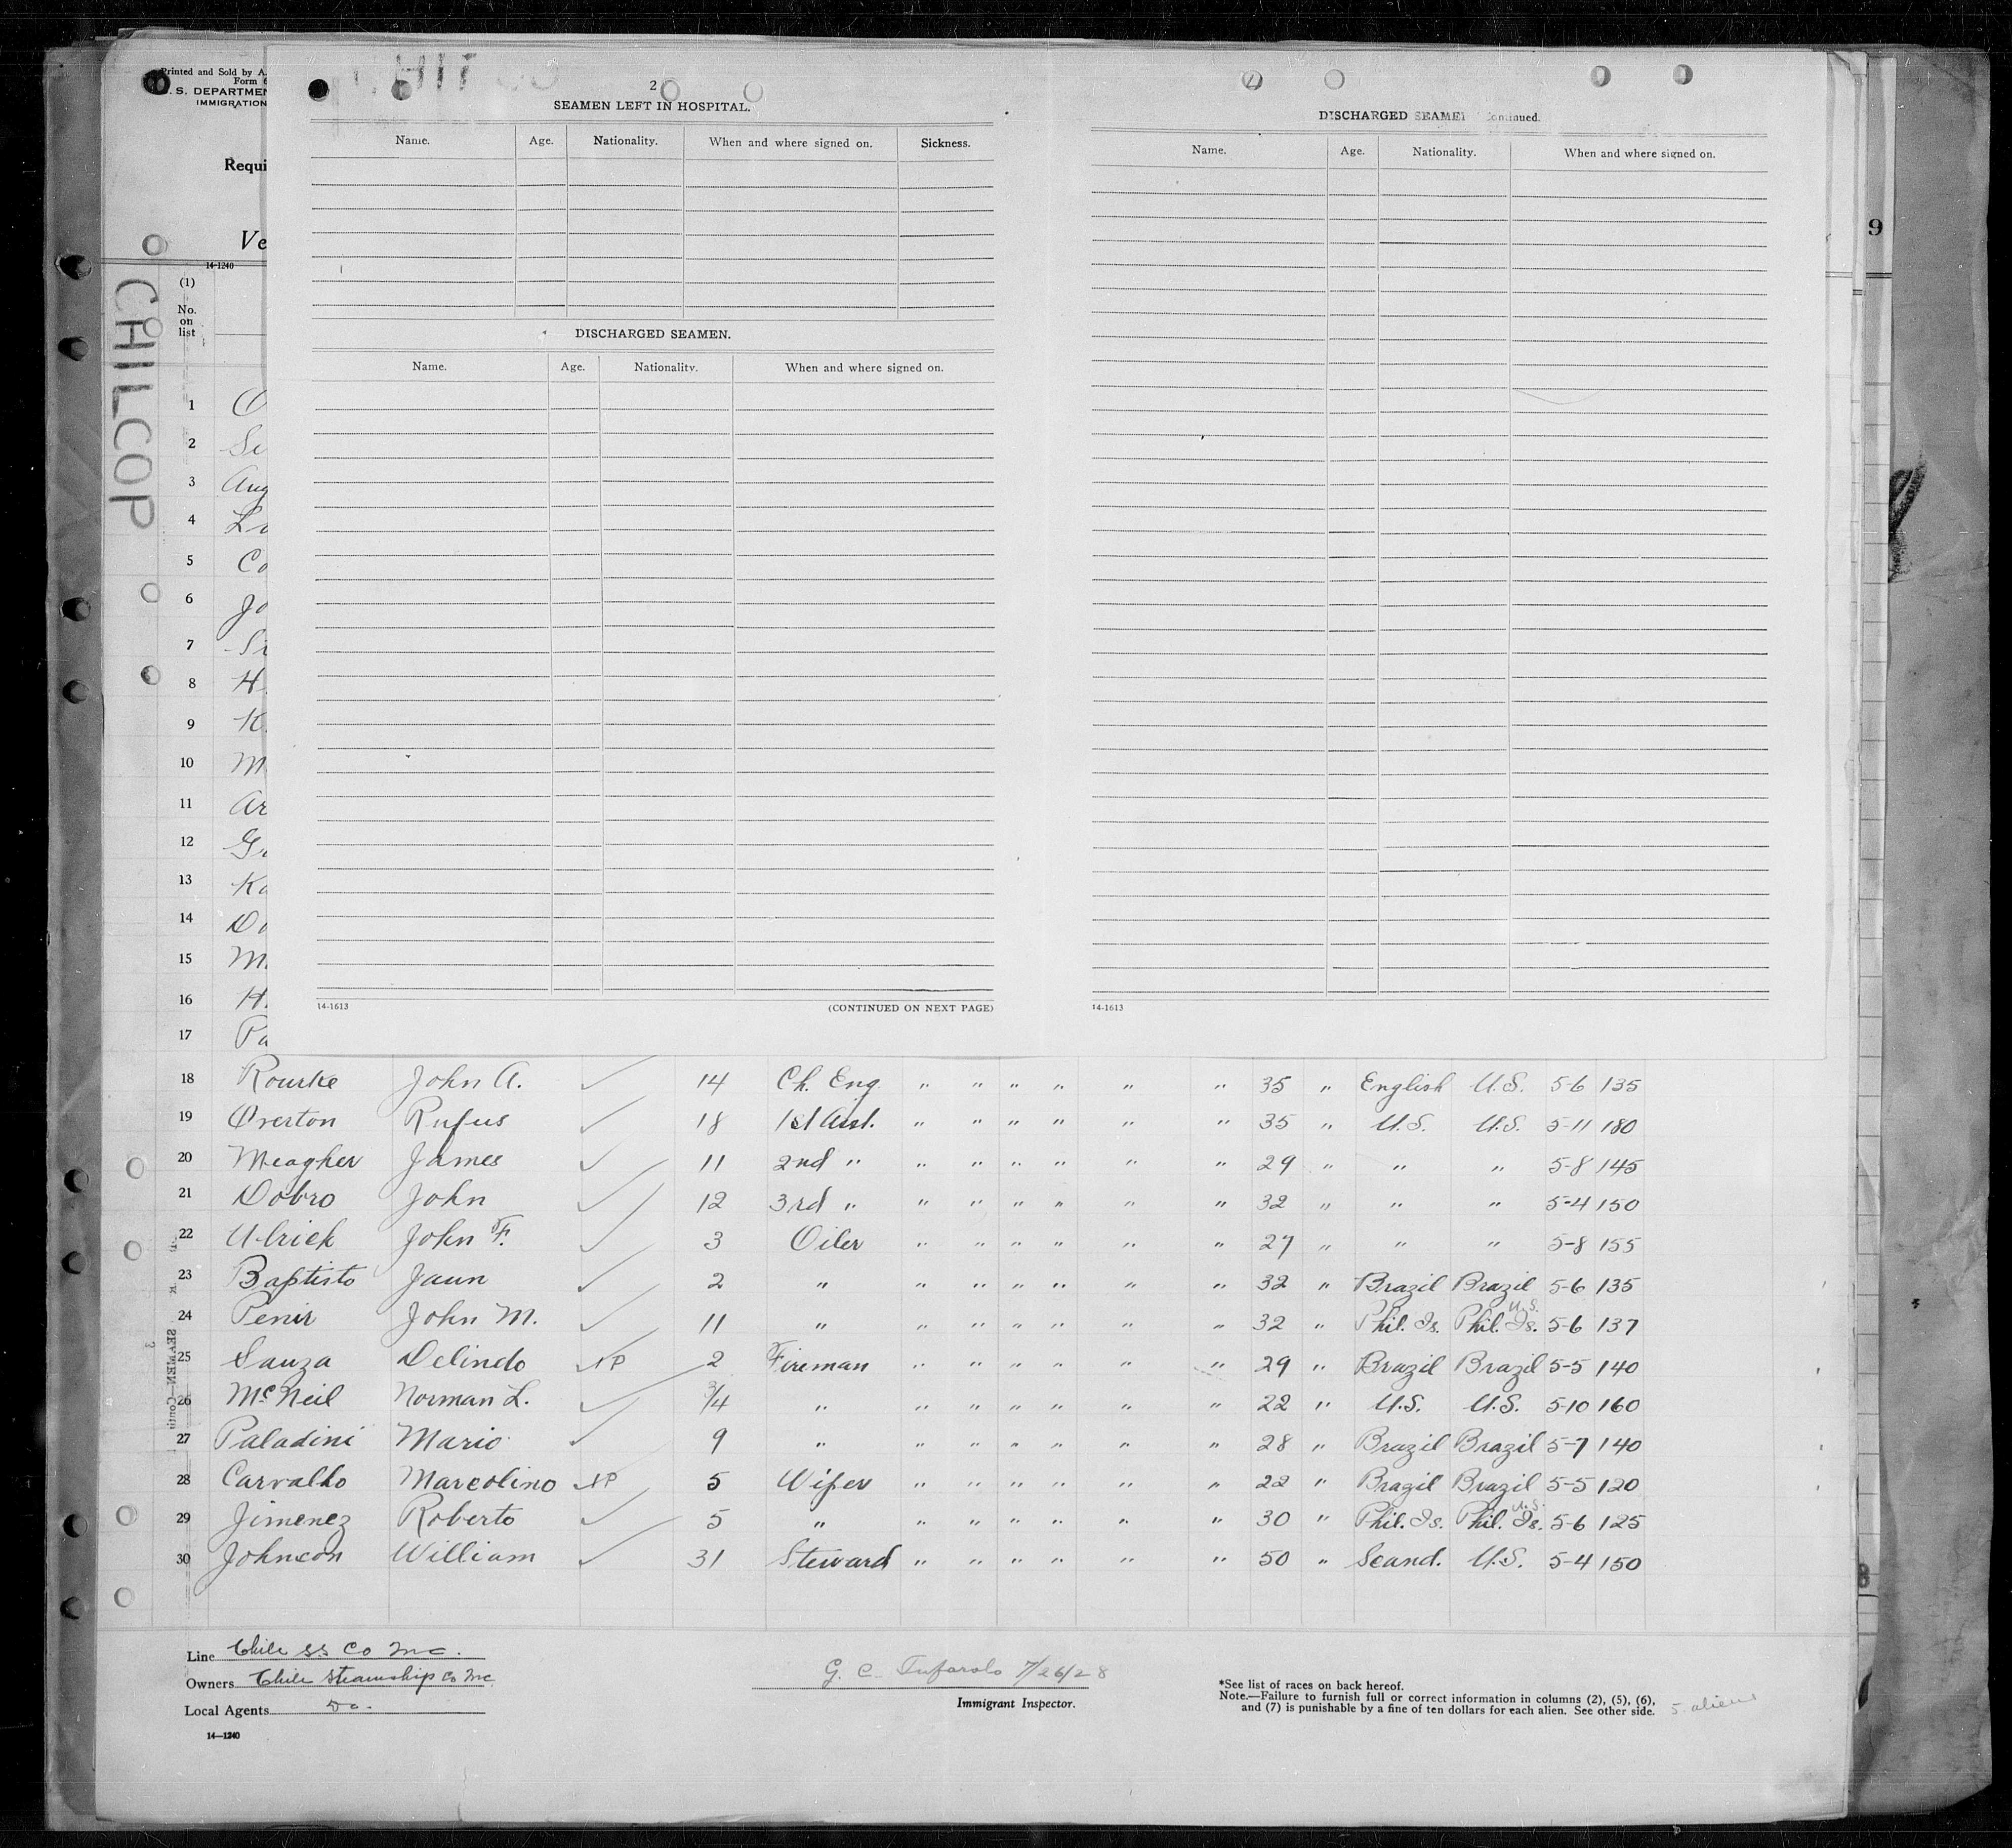 Printed and Sold by A.
Form 6
U. S. DEPARTMEN
IMMIGRATION
Requi
Ve
14-1240
CHILCOP
(1)
No.
on
list
2
SEAMEN LEFT IN HOSPITAL.
Name. Age. Nationality. When and where signed on. Sickness.
DISCHARGED SEAMEN.
Name. Age. Nationality. When and where signed on.
14-1613 (CONTINUED ON NEXT PAGE)
DISCHARGED SEAMEN Continued.
Name. Age. Nationality. When and where signed on.
14-1613
9
1 O
2 Se
3 Aug
4 Lo
5 Co
6 Jo
7 Si
8 H.
9 K.
10 M
11 Ar
12 Gu
13 Ka
14 Do
15 M.
16 H.
17 Pa
18 Rourke John A. ✓ 14 Ch. Eng. " " " " " " 35 " English U.S. 5-6 135
19 Overton Rufus ✓ 18 1st Asst. " " " " " " 35 " U.S. U.S. 5-11 180
20 Meagher James ✓ 11 2nd " " " " " " " 29 " " " 5-8 145
21 Dobro John ✓ 12 3rd " " " " " " " 32 " " " 5-4 150
22 Ulrich John F. ✓ 3 Oiler " " " " " " 27 " " " 5-8 155
23 Baptisto Jaun ✓ 2 " " " " " " " 32 " Brazil Brazil 5-6 135
24 Penir John M. ✓ 11 " " " " " " " 32 " Phil. Is. Phil. Is. U.S. 5-6 137
25 Sauza Delindo ✓ NP 2 Fireman " " " " " " 29 " Brazil Brazil 5-5 140
26 McNeil Norman L. ✓ 3/4 " " " " " " " 22 " U.S. U.S. 5-10 160
27 Paladini Mario ✓ 9 " " " " " " " 28 " Brazil Brazil 5-7 140
28 Carvalho Marcolino ✓ NP 5 Wiper " " " " " " 22 " Brazil Brazil 5-5 120
29 Jimenez Roberto ✓ 5 " " " " " " " 30 " Phil. Is. Phil. Is. U.S. 5-6 125
30 Johnson William ✓ 31 Steward " " " " " " 50 " Scand. U.S. 5-4 150
Line Chile SS Co Inc.
Owners Chile Steamship Co Inc
Local Agents Do.
14-1240
G. C. Tufarolo 7/26/28
Immigrant Inspector.
*See list of races on back hereof.
Note.—Failure to furnish full or correct information in columns (2), (5), (6),
and (7) is punishable by a fine of ten dollars for each alien. See other side.
5 aliens